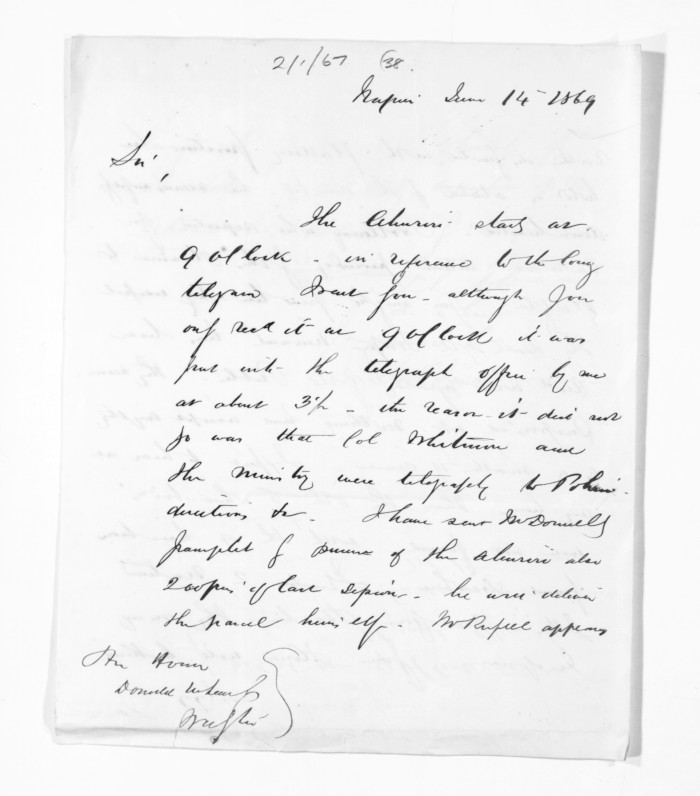 2/1/67 38.
Napier June 14 1869
Sir,
The Ahuriri starts at
9 oClock - in reference to the long
telegram I sent you - although you
only recd it at 9 oClock it was
put into the telegraph office by me
at about 3 - the reason it did not
go was that Col Whitmore and
the Ministry were telegraphg to
directions &c. I have sent McDonnells
pamplet of the Ahuriri also
2 copies of last - he will deliver
the parcel himself. Mr appears
His Honor
Donald McLean